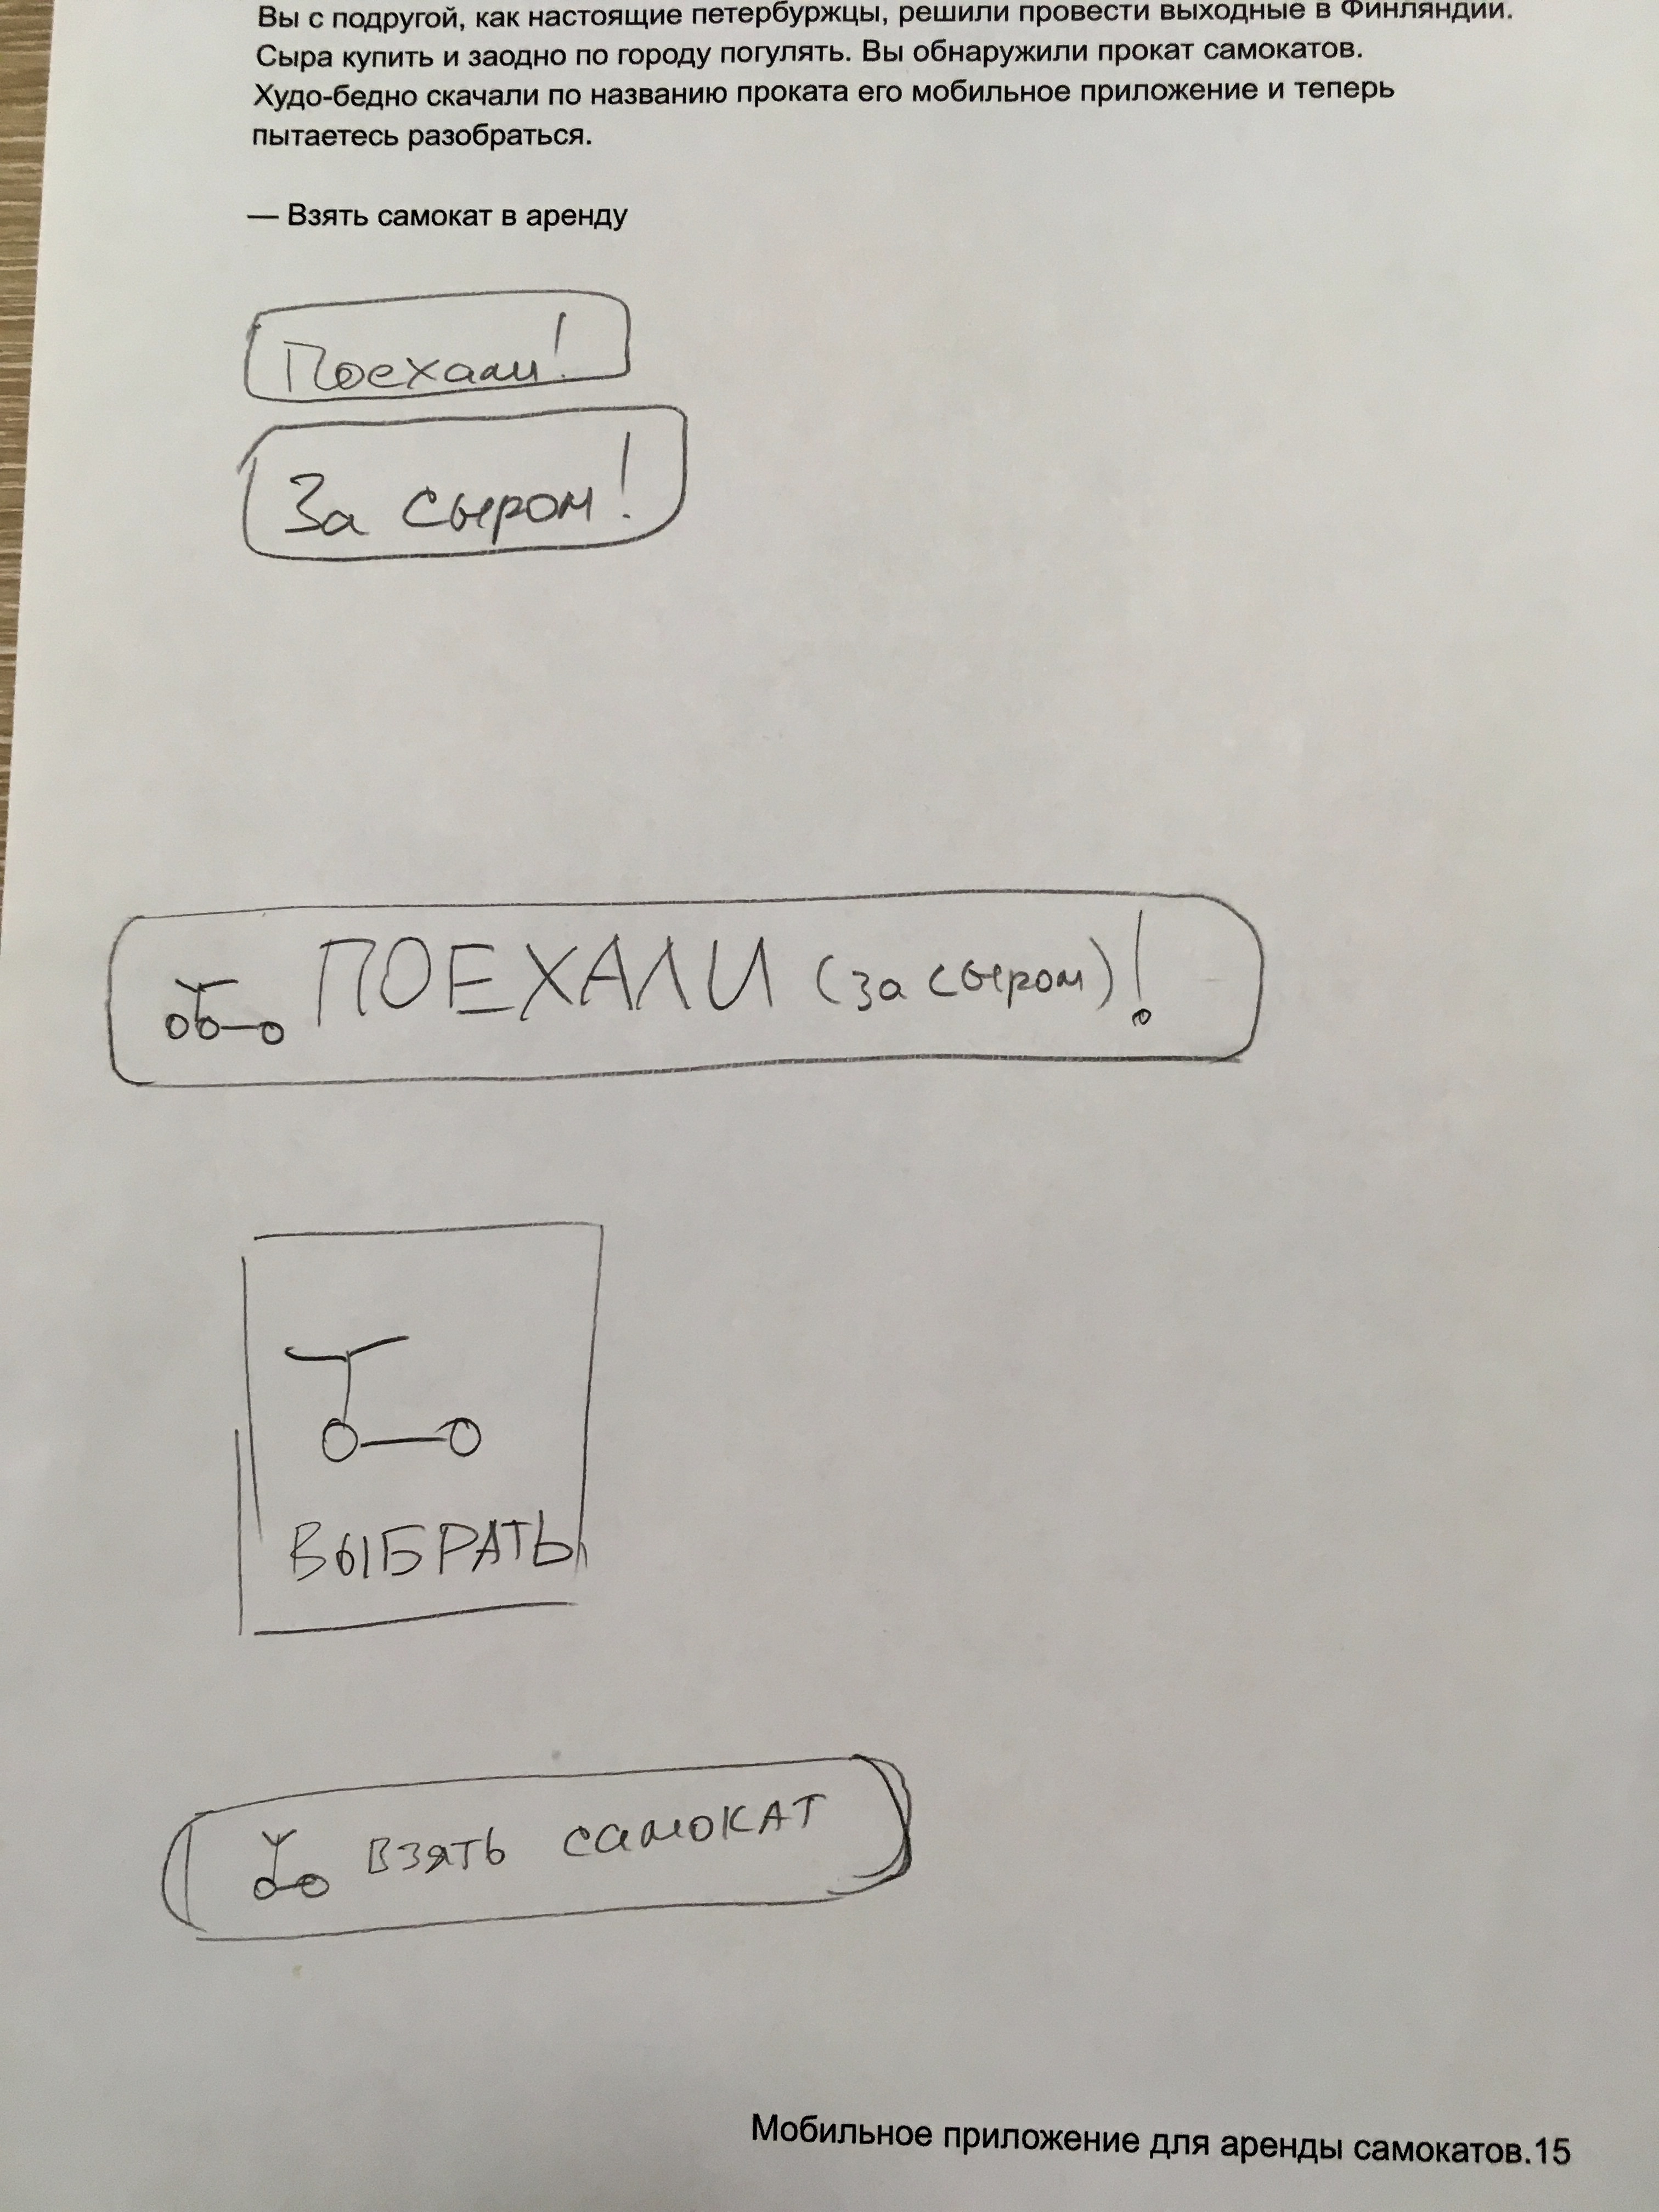 Вы с подругой, как настоящие петербуржцы, решили провести выходные в Финляндии.
Сыра купить и заодно по городу погулять. Вы обнаружили прокат самокатов.
Худо-бедно скачали по названию проката его мобильное приложение и теперь
пытаетесь разобраться.
— Взять самокат в аренду
Поехали!
За сыром!
ПОЕХАЛИ (за сыром)!
ВЫБРАТЬ
взять самокат
Мобильное приложение для аренды самокатов.15